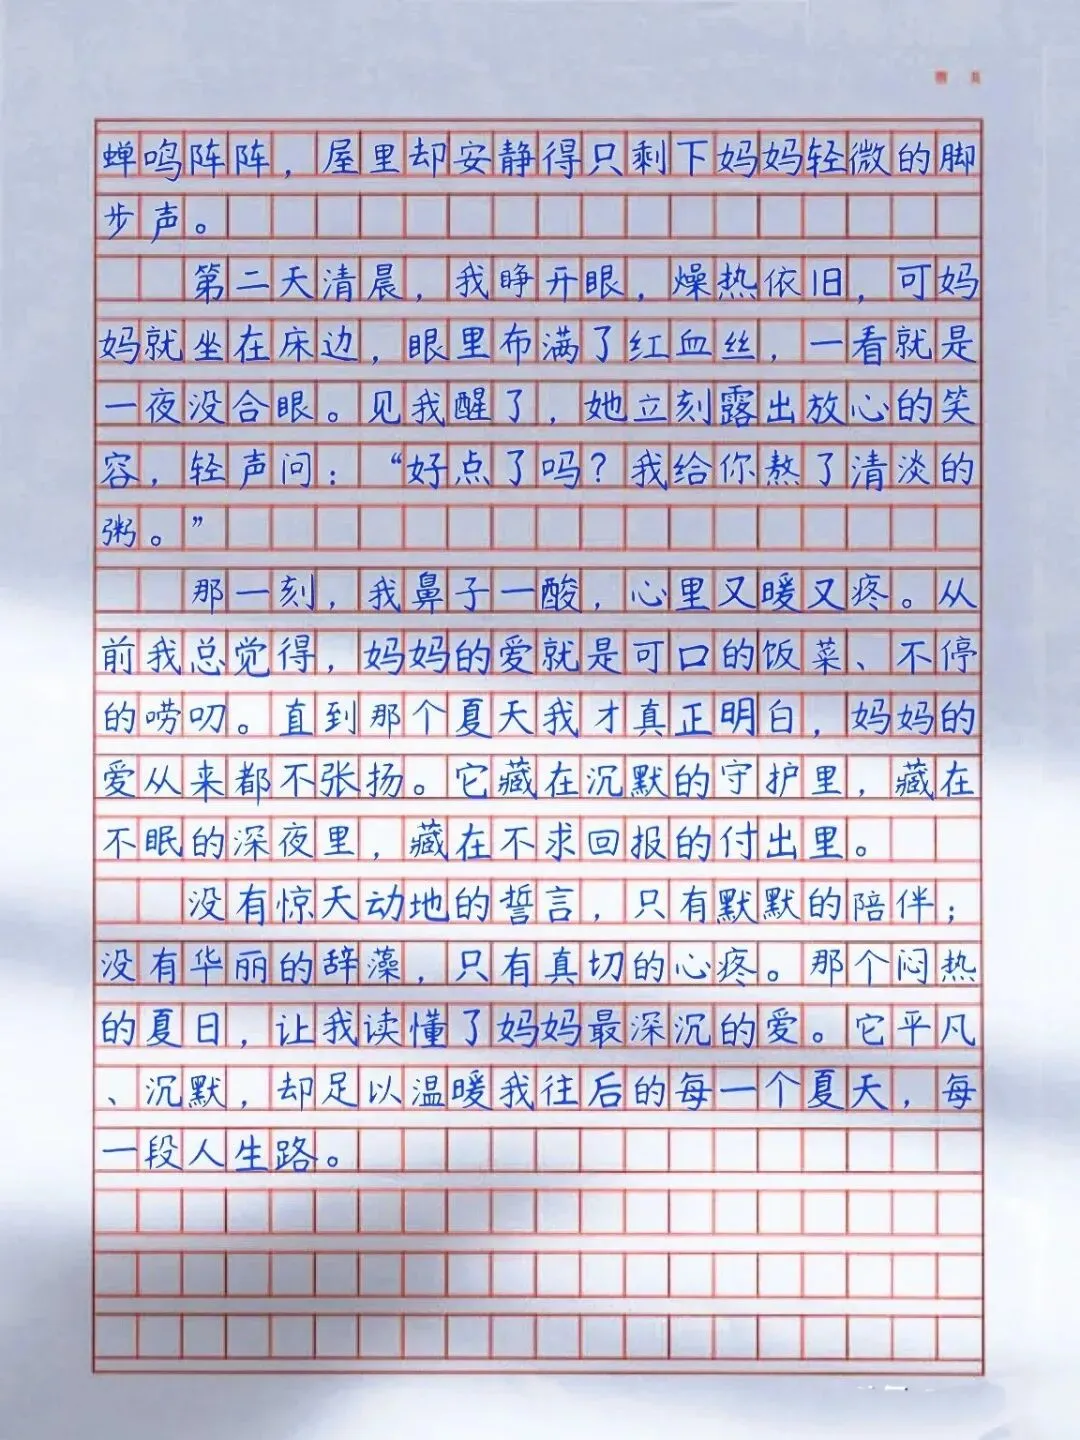 蝉鸣阵阵，屋里却安静得只剩下妈妈轻微的脚
步声。
第二天清晨，我睁开眼，燥热依旧，可妈
妈就坐在床边，眼里布满了红血丝，一看就是
一夜没合眼。见我醒了，她立刻露出放心的笑
容，轻声问：“好点了吗？我给你熬了清淡的
粥。”
那一刻，我鼻子一酸，心里又暖又疼。从
前我总觉得，妈妈的爱就是可口的饭菜、不停
的唠叨。直到那个夏天我才真正明白，妈妈的
爱从来都不张扬。它藏在沉默的守护里，藏在
不眠的深夜里，藏在不求回报的付出里。
没有惊天动地的誓言，只有默默的陪伴；
没有华丽的辞藻，只有真切的心疼。那个闷热
的夏日，让我读懂了妈妈最深沉的爱。它平凡
、沉默，却足以温暖我往后的每一个夏天，每
一段人生路。